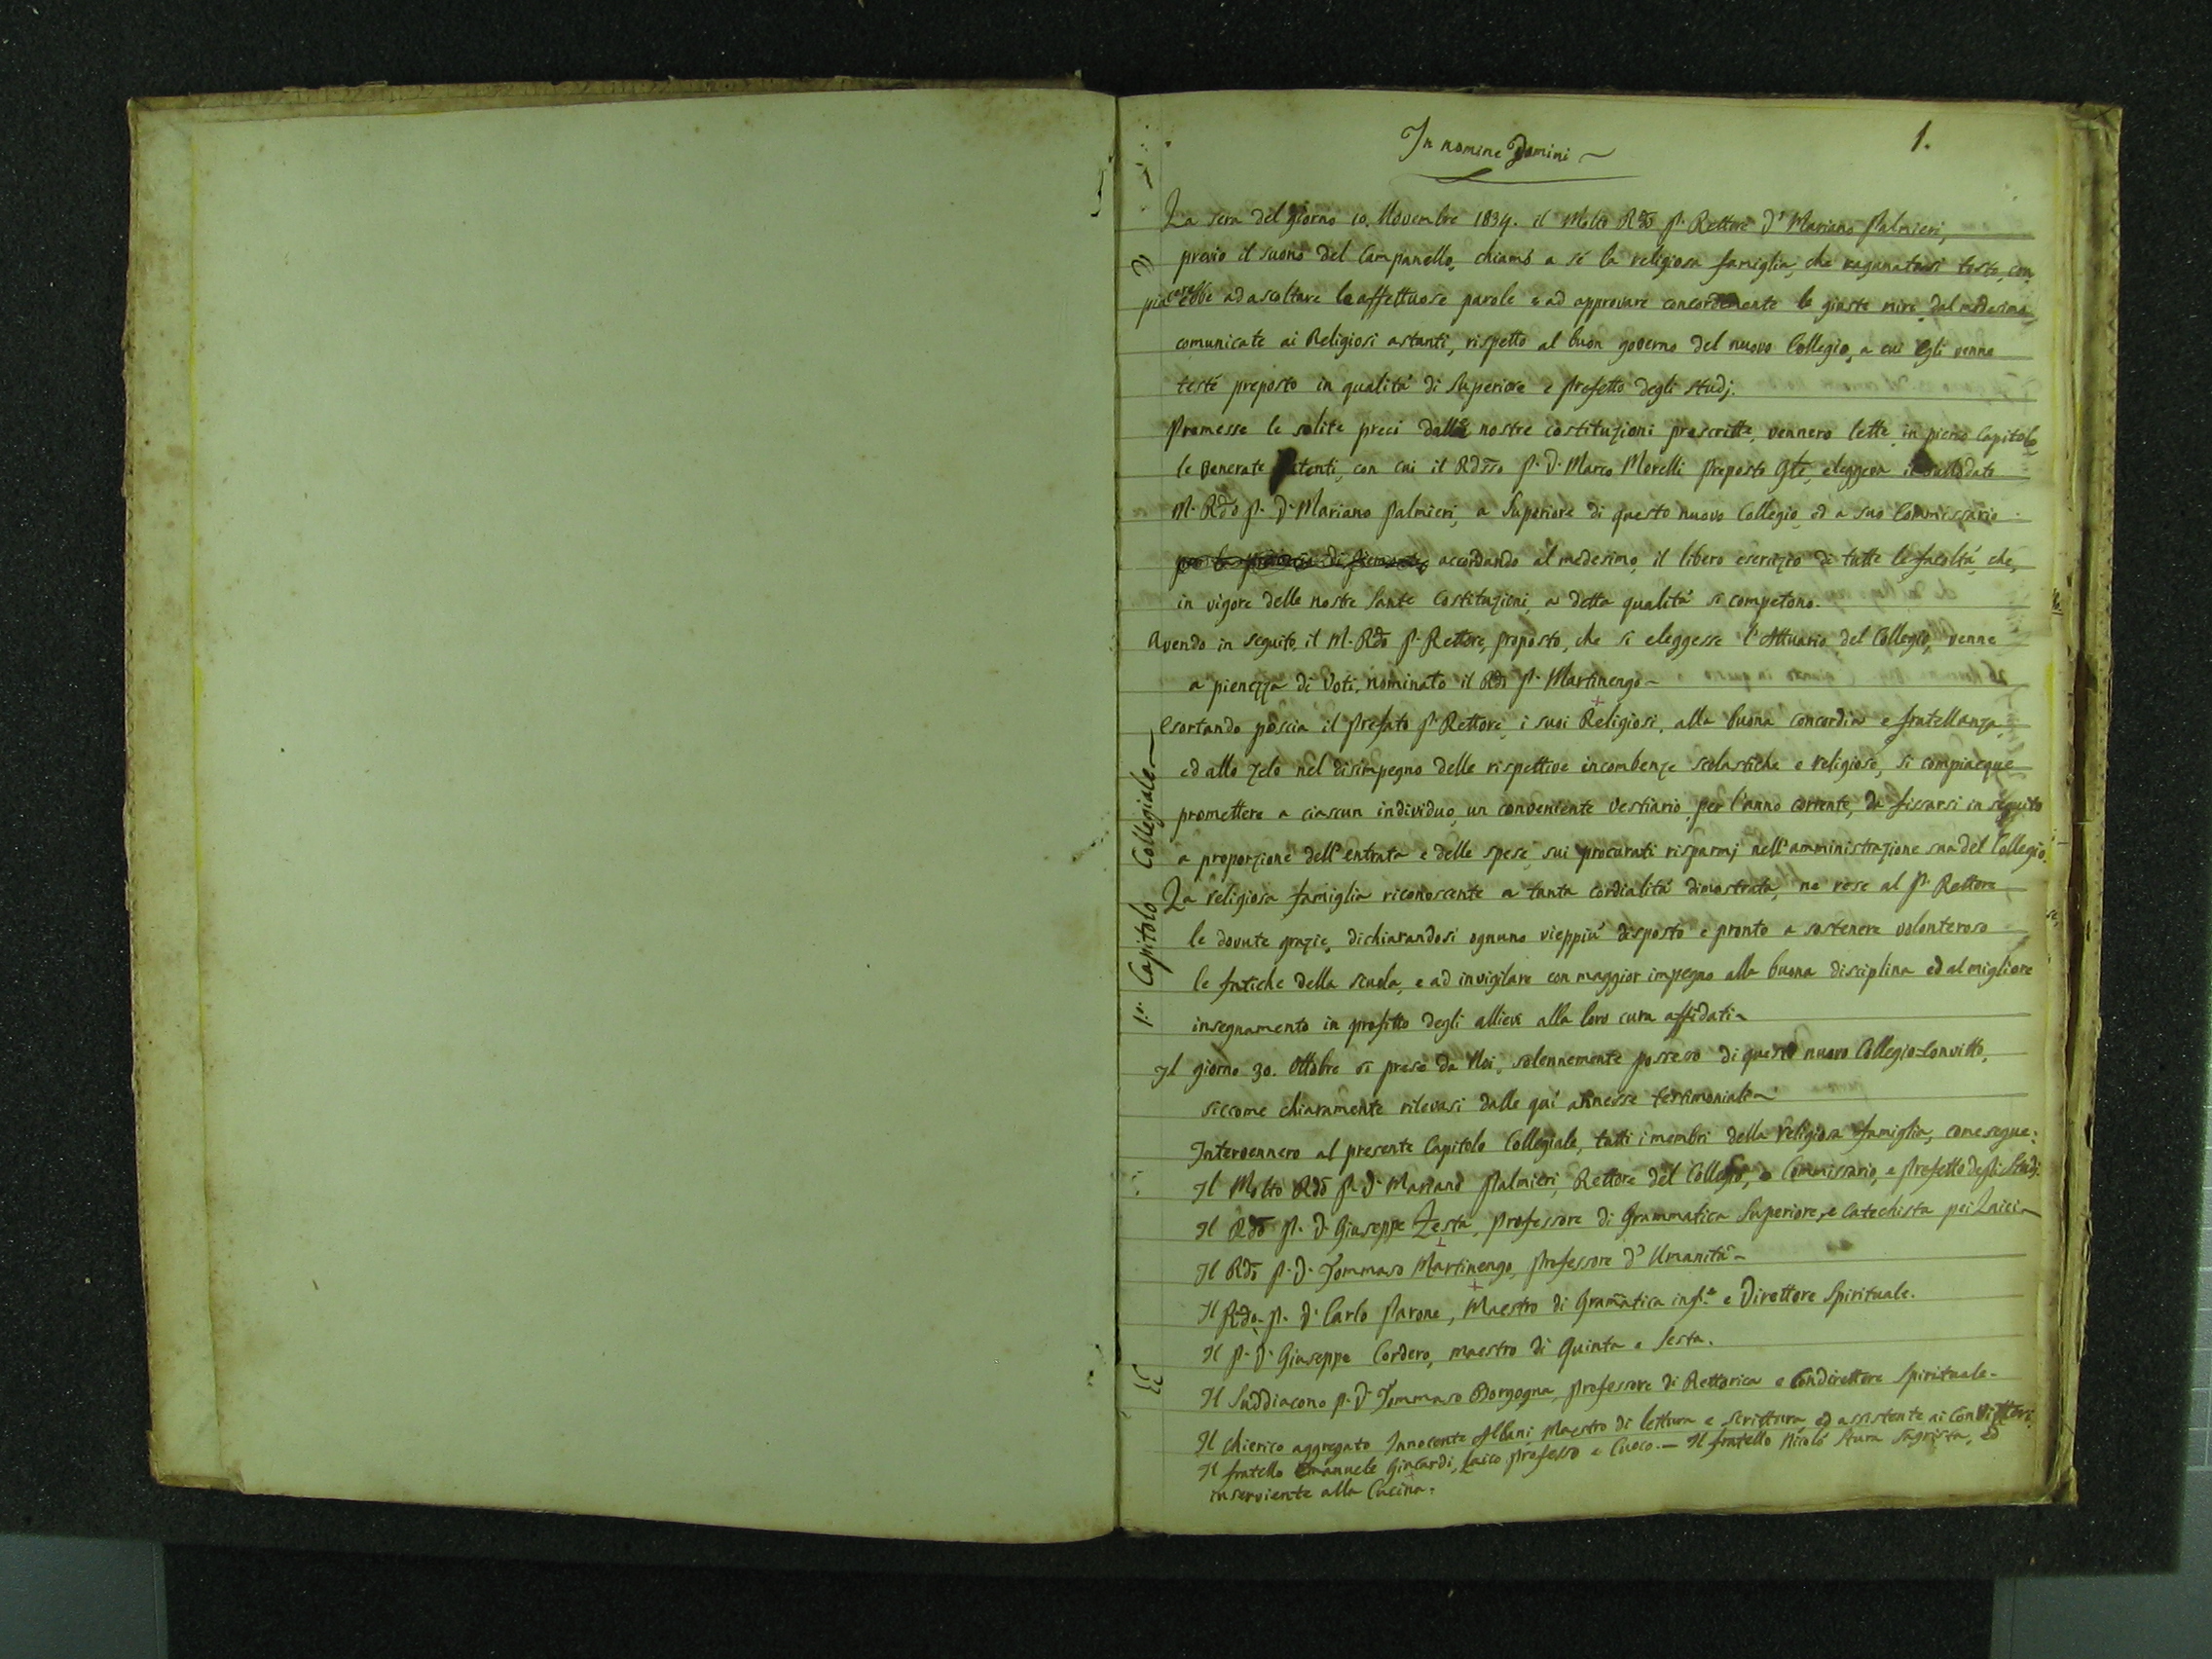 In nomine Domini ~
1.
La sera del giorno 10. Novembre 1834. il Molto Rdo P. Rettore D. Mariano Palmieri,
previo il suono del Campanello, chiamò a sé la religiosa famiglia, che ragunatasi tosto, con
piacere ebbe ad ascoltare le affettuose parole e ad approvare concordemente le giuste mire dal medesimo
comunicate ai Religiosi astanti, rispetto al buon governo del nuovo Collegio, a cui egli venne
testé preposto in qualitá di Superiore e Prefetto degli studj.
Premesse le solite preci dalle nostre costituzioni prescritte, vennero lette in pieno Capitolo
le venerate Patenti, con cui il Rdsso P. D. Marco Morelli Preposto Gle, eleggeva il sullodato
M. Rdo P. D. Mariano Palmieri, a Superiore di questo nuovo Collegio, ed a suo Commissario
per la provincia di Piemonte, accordando al medesimo, il libero esercizio di tutte le facoltá, che,
in vigore delle nostre Sante Costituzioni, a detta qualitá si competono.
Avendo in seguito, il M. Rdo P. Rettore, proposto, che si eleggesse l'Attuario del Collegio, venne
a pienezza di Voti, nominato il Rdo P. Martinengo ~
Esortando poscia il Prefato P. Rettore, i suoi Religiosi, alla buona concordia e fratellanza,
ed allo zelo nel disimpegno delle rispettive incombenze scolastiche e religiose, si compiacque
promettere a ciascun individuo, un conveniente vestiario, per l'anno corrente, da fissarsi in seguito
a proporzione dell'entrata e delle spese, sui procurati risparmj nell'amministrazione sua del Collegio.
La religiosa famiglia riconoscente a tanta cordialitá dimostrata, ne rese al P. Rettore
le dovute grazie, dichiarandosi ognuno vieppiú disposto e pronto a sostenere volonteroso
le fatiche della scuola, e ad invigilare con maggior impegno alla buona disciplina ed al migliore
insegnamento in profitto degli allievi alla loro cura affidati ~
Il giorno 30. Ottobre si prese da Noi, solennemente possesso di questo nuovo Collegio-Convitto,
siccome chiaramente rilevasi dalle quí annesse testimoniali ~
Intervennero al presente Capitolo Collegiale, tutti i membri della religiosa famiglia, come segue:
Il Molto Rdo P. D. Mariano Palmieri, Rettore del Collegio, Commissario, e Prefetto degli Studj.
Il Rdo P. D. Giuseppe Zesta, Professore di Grammatica Superiore, e Catechista pei Laici ~
Il Rdo P. D. Tommaso Martinengo, Professore d'Umanitá ~
Il Rdo P. D. Carlo Parone, Maestro di Gramatica inf.e e Direttore Spirituale.
Il P. D. Giuseppe Cordero, maestro di Quinta e Sesta.
Il Suddiacono P. D. Tommaso Borgogna, Professore di Rettorica e Condirettore Spirituale.
Il chierico aggregato Innocente Albani Maestro di lettura e scrittura, ed assistente ai Convittori.
Il fratello Emanuele Giacardi, Laico Professo e Cuoco. — Il fratello Nicoló Stura Sagrista, ed
inserviente alla Cucina.
1.o Capitolo Collegiale ~